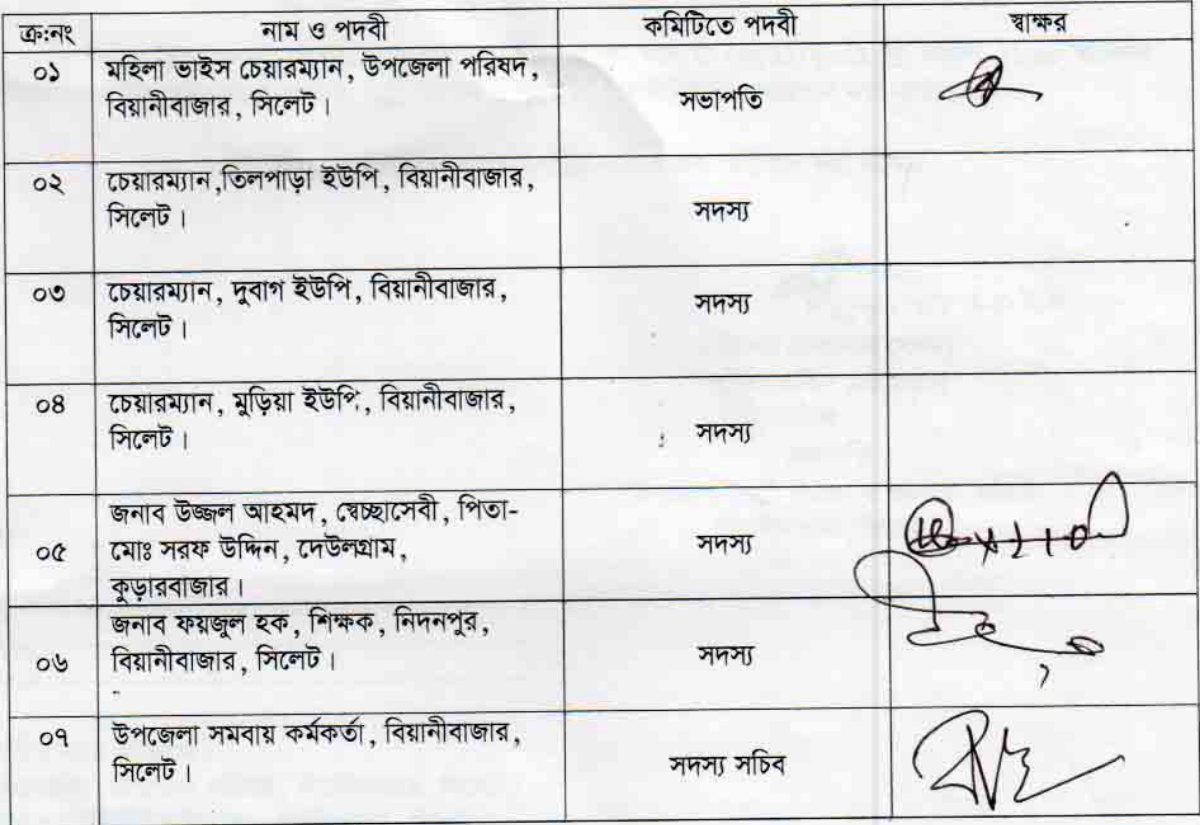 ক্র:নং নাম ও পদবী কমিটিতে পদবী স্বাক্ষর
০১ মহিলা ভাইস চেয়ারম্যান, উপজেলা পরিষদ,
বিয়ানীবাজার, সিলেট। সভাপতি
০২ চেয়ারম্যান,তিলপাড়া ইউপি, বিয়ানীবাজার,
সিলেট। সদস্য
০৩ চেয়ারম্যান, দুবাগ ইউপি, বিয়ানীবাজার,
সিলেট। সদস্য
০৪ চেয়ারম্যান, মুড়িয়া ইউপি, বিয়ানীবাজার,
সিলেট। সদস্য
জনাব উজ্জল আহমদ, স্বেচ্ছাসেবী, পিতা-
০৫ মোঃ সরফ উদ্দিন, দেউলগ্রাম, সদস্য
কুড়ারবাজার।
জনাব ফয়জুল হক, শিক্ষক, নিদনপুর,
০৬ বিয়ানীবাজার, সিলেট। সদস্য
০৭ উপজেলা সমবায় কর্মকর্তা, বিয়ানীবাজার,
সিলেট। সদস্য সচিব